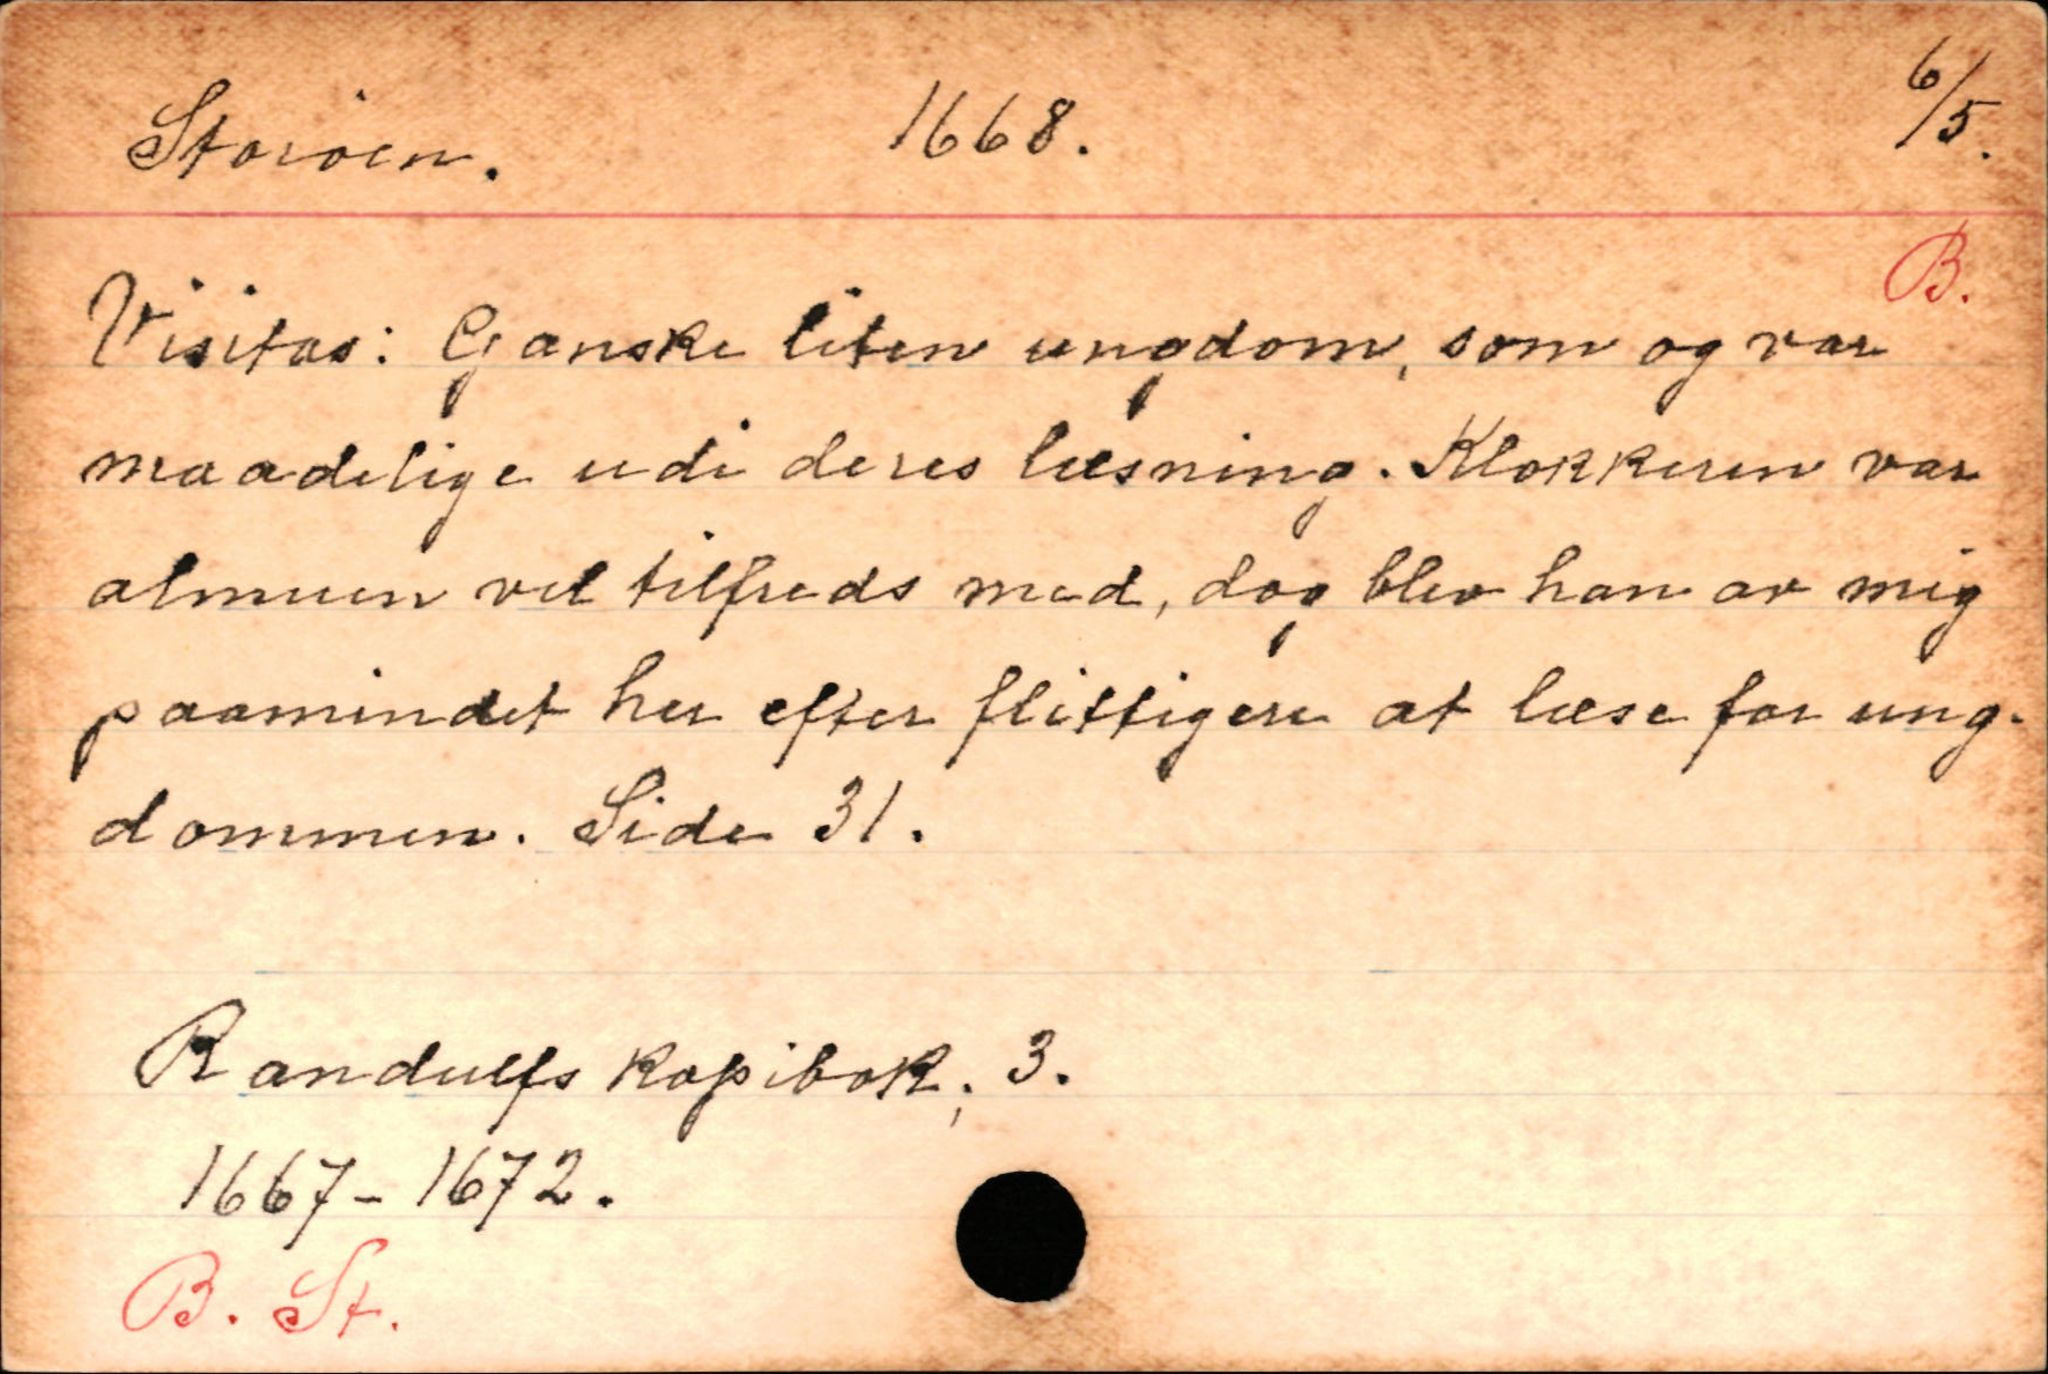 Storöen. 1668. 6/5.
B.
Visitas: Ganske liten ungdom, som og var
maadelige udi deres læsning. Klokkeren var
almuen vel tilfreds med, dog blev han av mig
paamindet her efter flittigere at læse for ung-
dommen. Side 31.
Randulfs kopibok, 3.
1667-1672.
B. St.